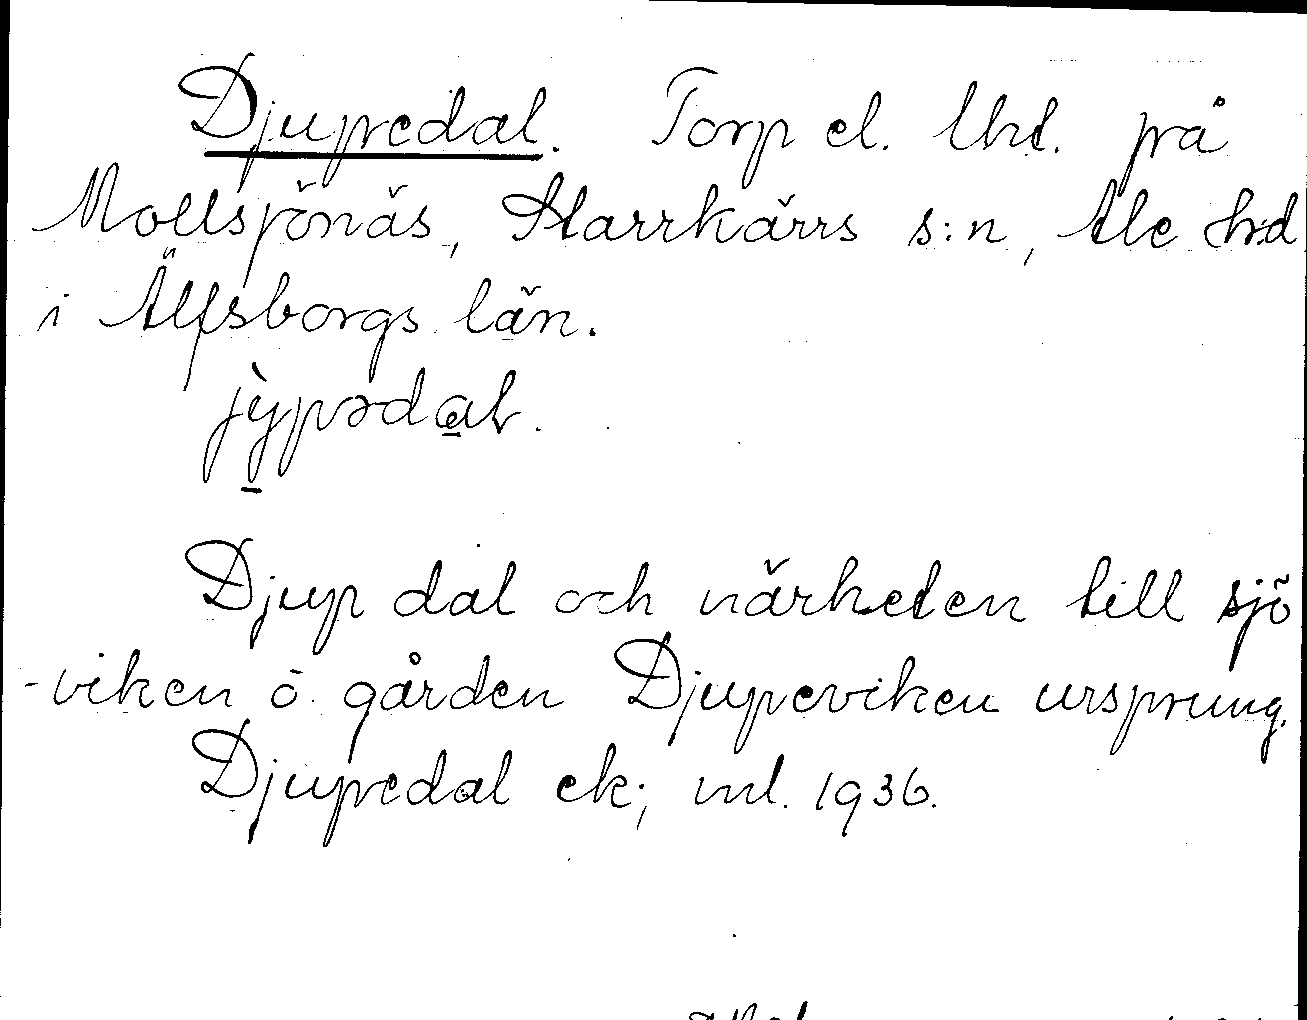 Djupedal. Torp el. lht. på
Mollsjönäs, Starrkärrs s:n, Ale hd
i Älfsborgs län.
jỳpədal.
Djup dal och närheten till sjö
-viken ö. gården Djupeviken ursprung.
Djupedal ek; uul. 1936.